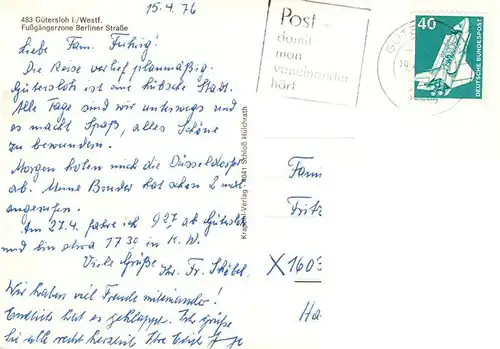 483 Gütersloh i./Westf.
Fußgängerzone Berliner Straße
15.4.76
Liebe Fam. Frühing!
Die Reise verlief planmäßig.
Gütersloh ist eine hübsche Stadt.
Alle Tage sind wir unterwegs und
es macht Spaß, alles Schöne
zu bewundern.
Morgen holen mich die Düsseldorfer
ab. Meine Bruder hat schon 2 mal
angerufen.
Am 27.4. fahre ich 927 ab Gütersloh
und bin etwa 17 30 in K.W.
Viele Grüße
Ihr. Fr. Schöbel
Wir haben viel Freude miteinander!
Endlich hat es geklappt. Ich grüße
Sie alle recht herzlich Ihre
Krapohl-Verlag · 4041 Schloß Hülchrath
Post -
damit
man
voneinander
hört
40
DEUTSCHE BUNDESPOST
Fam
Fritz
X 1603
Ha